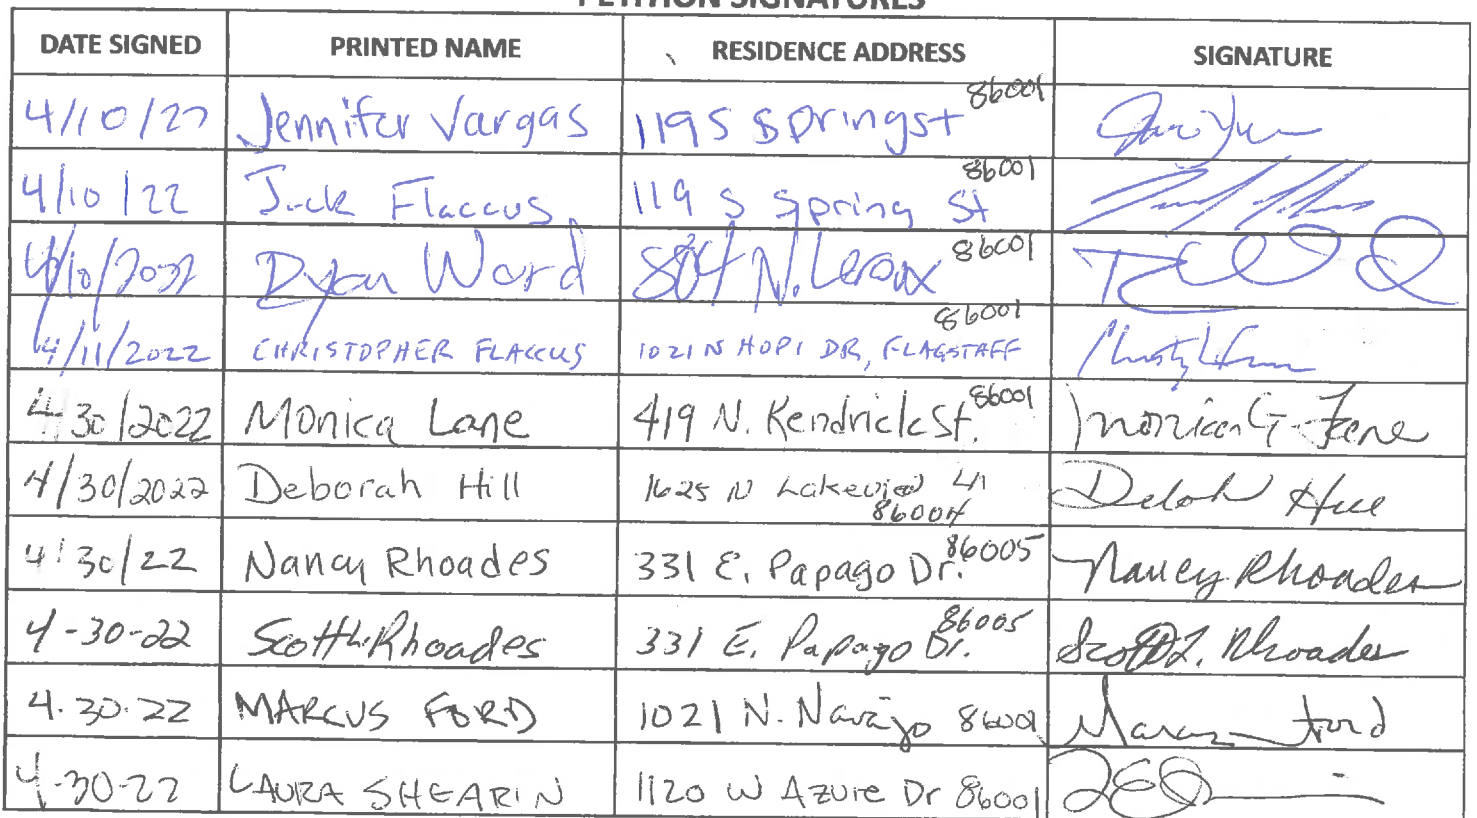 PETITION SIGNATURES
DATE SIGNED PRINTED NAME RESIDENCE ADDRESS SIGNATURE
4/10/22 Jennifer Vargas 119 S Spring st 86001
4/10/22 Jack Flaccus 119 S Spring St 86001
4/10/2022 Dylan Ward 804 N. Leroux 86001
4/11/2022 CHRISTOPHER FLACCUS 1021 N HOPI DR, FLAGSTAFF 86001
4/30/2022 Monica Lane 419 N. Kendrick St. 86001 Monica G. Lane
4/30/2022 Deborah Hill 1625 N Lakeview Ln 86004 Deborah Hill
4/30/22 Nancy Rhoades 331 E. Papago Dr. 86005 Nancy Rhoades
4-30-22 Scott L. Rhoades 331 E. Papago Dr. 86005 Scott L. Rhoades
4.30.22 MARCUS FORD 1021 N. Navajo 86001 Marcus Ford
4-30-22 LAURA SHEARIN 1120 W Azure Dr 86001